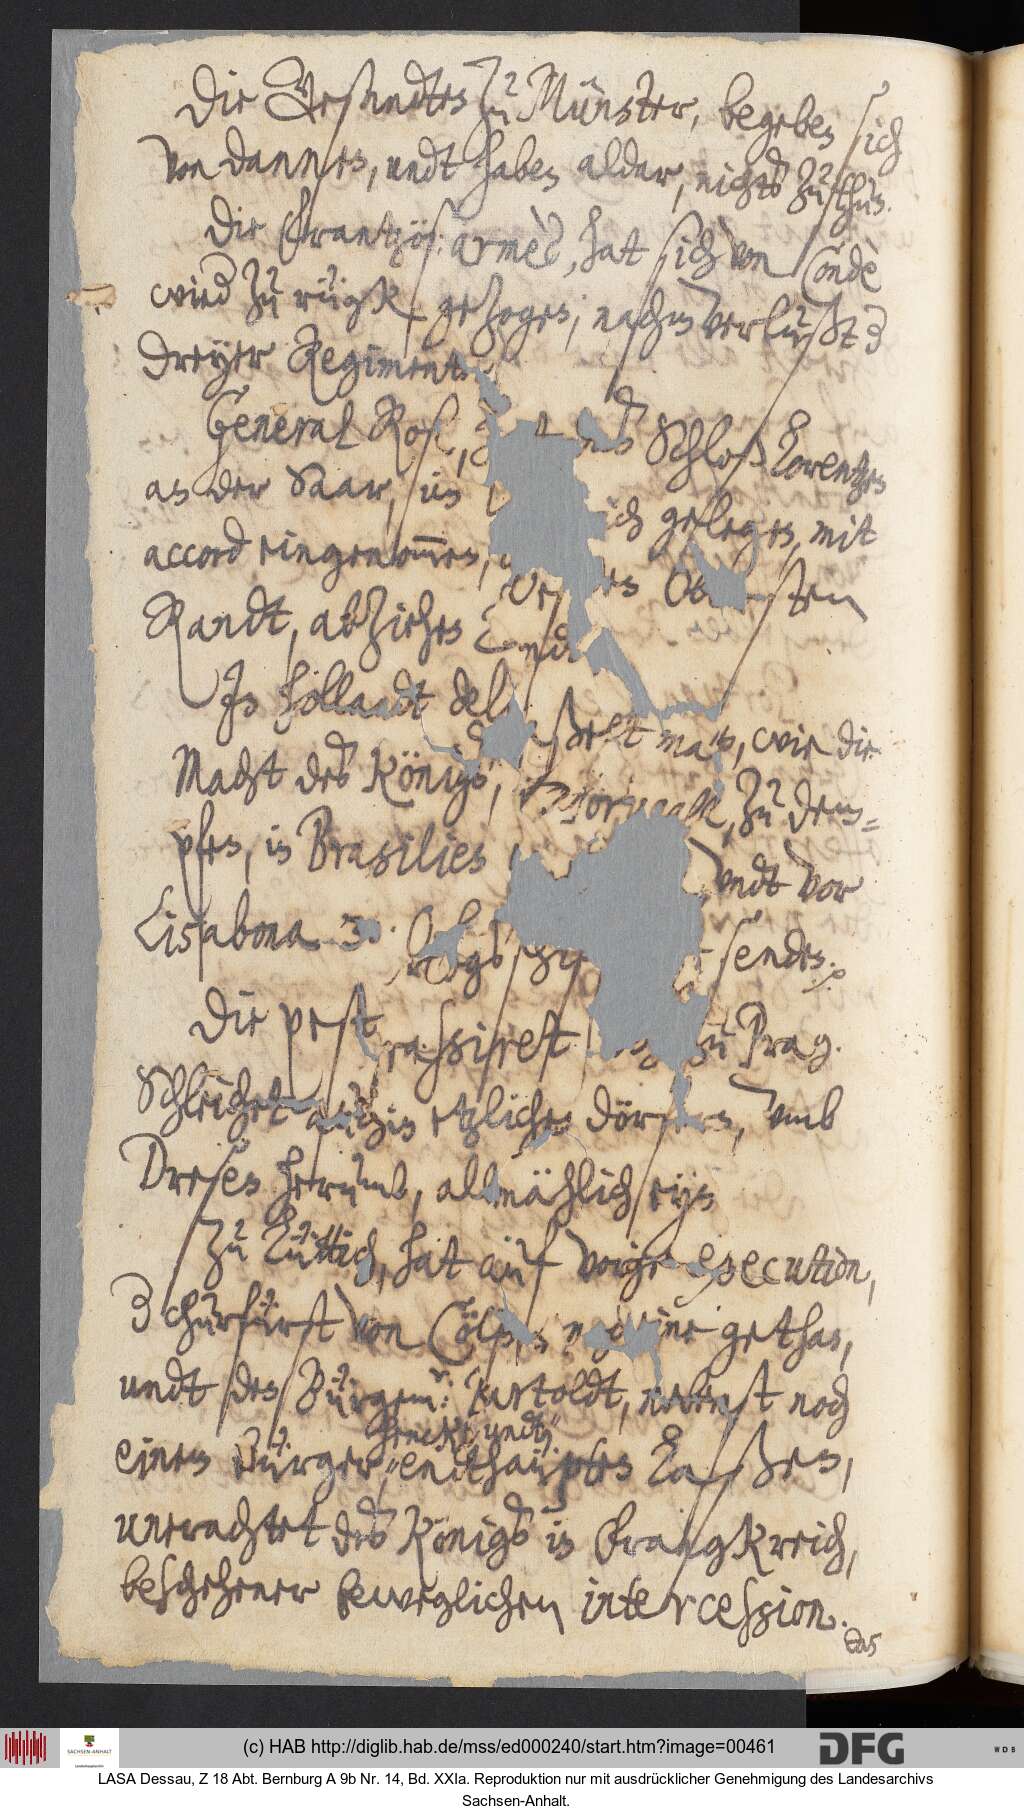 Die Gesandten zu Münster, begeben sich
von dannen, undt haben aldar, nichts zu thun.
Die Frantzös: armèe, hat sich von Condè
wied zu rügk gezogen, nach verlußt 3
dreyer Regiment
General Rose, Schloß Lorentzen
an der Saar, in gelegen, mit
accord eingenommen, Obersten
Randt, abziehen
In Hollandt man, wie die
Macht des Königs, zu dem=
pfen, in Brasilien undt vor
Lisabona 30. senden.
Die pest grassiret zu Prag.
Schleichet auch in etzlichen dörfern, umb
Dresen herumb, allmählich eyn
Zu Lüttich, hat auf vorige execution,
3 Churfürst von Cölln gethan,
undt den Bürgem: Bartoldt, nebenst noch
hencken undt
einem Bürger, endthaüpten Laßen,
unerachtet des Königs in Frangkreich,
beschehener beweglichen intercession.
Das
(c) HAB http://diglib.hab.de/mss/ed000240/start.htm?image=00461
SACHSEN-ANHALT
DFG
WDB
LASA Dessau, Z 18 Abt. Bernburg A 9b Nr. 14, Bd. XXIa. Reproduktion nur mit ausdrücklicher Genehmigung des Landesarchivs
Sachsen-Anhalt.